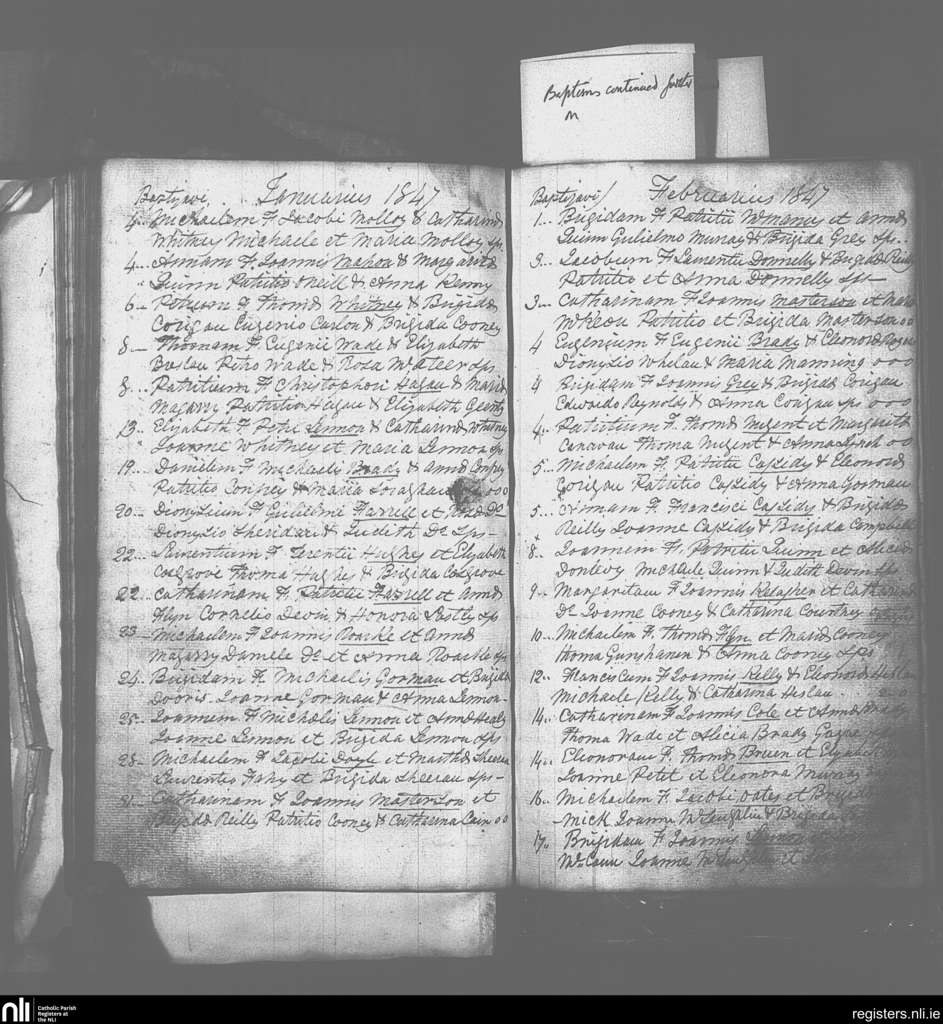 Baptisms continued further
on
Baptizavi Januarius 1847
4.. Michaelem F Jacobi Molloy & Catharina
Whitney Michaele et Maria Molloy Sps
4... Annam F. Joannis Mahon & Margarita
Quinn Patritio O'Neill & Anna Kenny
6.. F Thoma Whitney & Brigida
Corigan Eugenio Carlon & Brigida Cooney
8.. Thomam F. Eugenii Wade & Elizabeth
Petro Wade & Rosa McAteer Sps
8... Patritium F. Christophori Hagan & Maria
Magarry Patritio Hagan & Elizabeth
13.. Elizabeth F Petri Lennon & Catharina Whitney
Joanne Whitney et Maria Lennon Sps
19.. Danielem F Michaelis Brady & Anna
Patritio & Maria
20.. F Gulielmi Farrell et
Dionysio Sheridan & Judith Do Sps
22... Laurentium F Terentii Hughes et Elizabeth
Cosgrove Thoma Hughes & Brigida Cosgrove
22.. Catharinam F. Patritii Farrell et Anna
Flyn Cornelio Devin & Honora Sps
23.. Michaelem F Joannis Roarke et Anna
Magarry Daniele Do et Anna Roarke Sps
24.. Brigidam F. Michaelis Gorman et Brigida
Joanne Gorman & Anna Lennon
25.. Joannem F Michaelis Lennon et Anna Healy
Joanne Lennon et Brigida Lennon Sps
28.. Michaelem F Jacobi Doyle et Martha Sheeran
Laurentio Fahy et Brigida Sheeran Sps
31.. Catharinam F Joannis Masterson et
Brigida Reilly Patritio Cooney & Catharina Cain oo
Baptizavi Februarius 1847
1.. Brigidam F Patritii McManus et Anna
Quinn Gulielmo Murray & Brigida Grey Sps..
3.. Jacobum F Laurentii Donnelly & Brigida Reilly
Patritio et Anna Donnelly Sps
3... Catharinam F Joannis Masterson et Maria
McKeon Patritio et Brigida Masterson oo
4 Eugenium F Eugenii Brady & Eleonora
Dionysio Whelan & Maria Manning ooo
4 Brigidam F Joannis Grey & Brigida Corigan
Edwardo Reynolds & Anna Corigan Sps ooo
4.. Patritium F. Thoma Nugent et Margarita
Canavan Thoma Nugent & Anna oo
5.. Michaelem F. Patritii Cassidy & Eleonora
Gorigan Patritio Cassidy & Anna Gorman
5.. Annam F. Francisci Cassidy & Brigida
Reilly Joanne Cassidy & Brigida Campbell
8.. Joannem F. Patritii Quinn et Alicia
Donlevy Michaele Quinn & Judith Devin Sps
9.. Margaritam F Joannis Kelagher et Catharina
Do Joanne Cooney & Catharina Courtney
10.. Michaelem F. Thoma Flyn et Maria Cooney
Thoma Gunshanan & Anna Cooney Sps
12.. Franciscum F Joannis Kelly & Eleonora Heslan
Michaele Kelly & Catharina Heslan
14.. Catharinam F Joannis Cole et Anna Brady
Thoma Wade et Alicia Brady
14.. Eleonoram F. Thoma Breen et Elizabeth
Joanne Petit et Eleonora Murray
16.. Michaelem F. Jacobi Oates et Brigida
Mick Joanne McLoughlin & Brigida
17.. Brigidam F Joannis
McCann Joanne McLoughlin et
nli Catholic Parish
Registers at
the NLI
registers.nli.ie